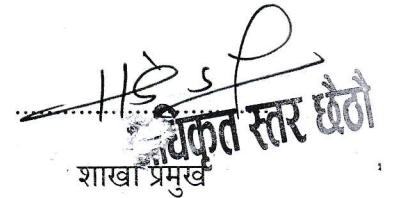 अधिकृत स्तर छैठौ
शाखा प्रमुख